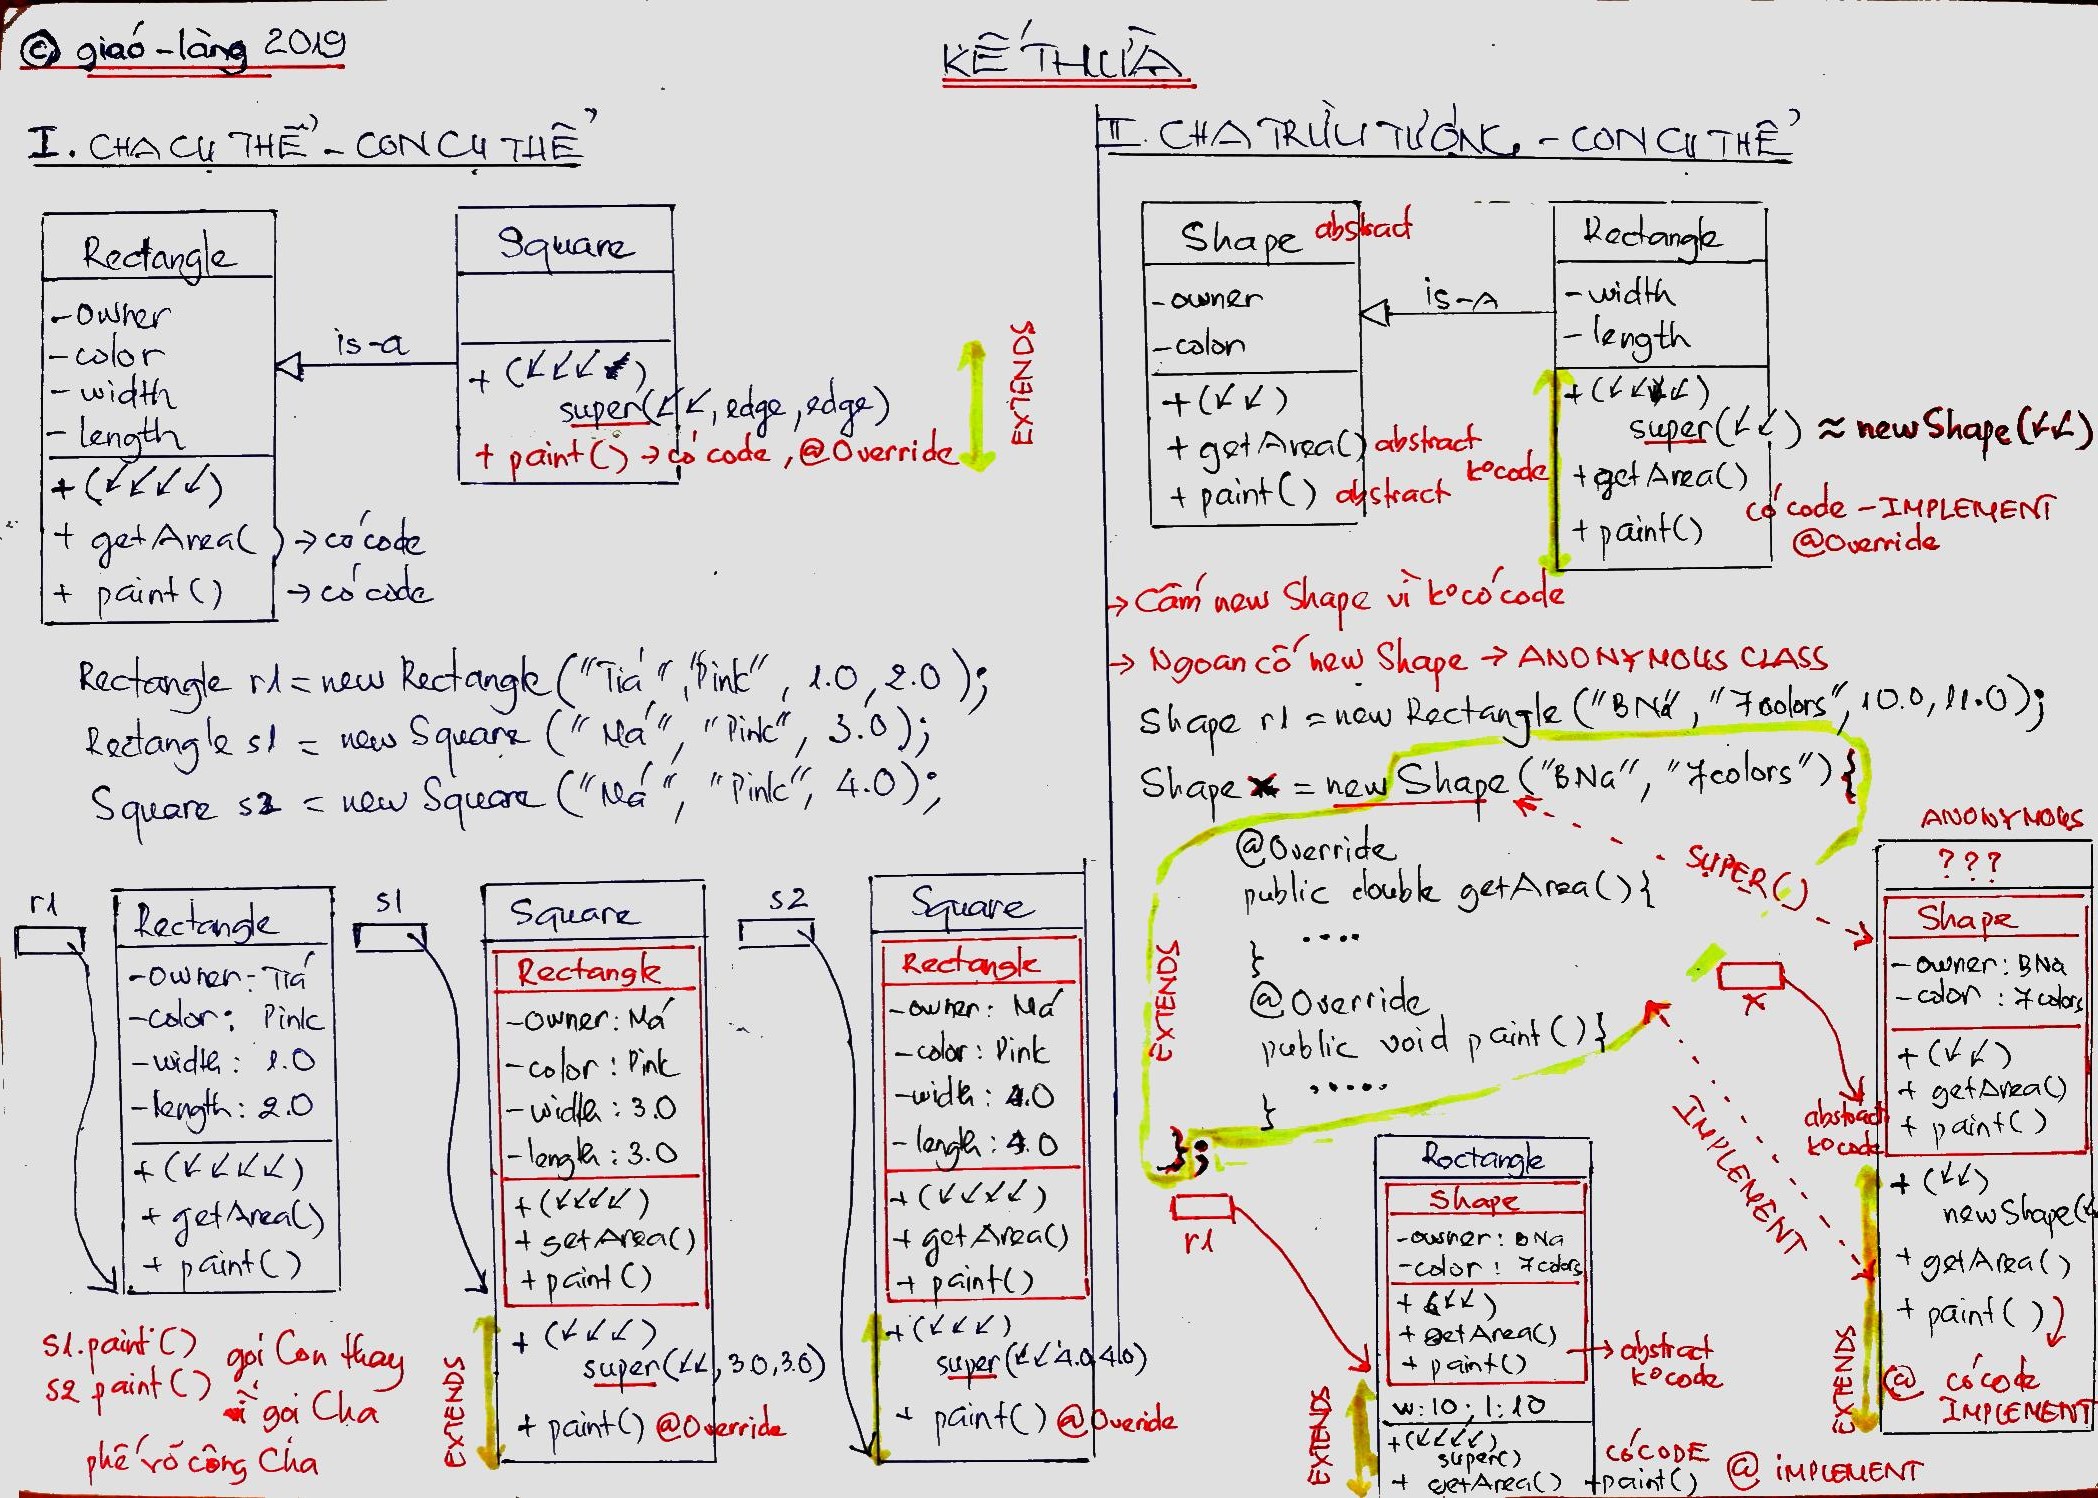 © giáo-làng 2019
KẾ THỪA
I. CHA CỤ THỂ - CON CỤ THỂ
Rectangle
-owner
-color
-width
-length
+(↙↙↙↙)
+ getArea() → có code
+ paint() → có code
is-a
Square
+ (↙↙↙)
super(↙↙, edge, edge)
+ paint() → có code, @Override
EXTENDS
Rectangle r1 = new Rectangle("Tía", "Pink", 1.0, 2.0);
Rectangle s1 = new Square("Má", "Pink", 3.0);
Square s2 = new Square("Má", "Pink", 4.0);
r1
Rectangle
-owner: Tía
-color: Pink
-width: 1.0
-length: 2.0
+(↙↙↙↙)
+ getArea()
+ paint()
s1
Square
Rectangle
-owner: Má
-color: Pink
-width: 3.0
-length: 3.0
+(↙↙↙↙)
+ getArea()
+ paint()
+ (↙↙↙)
super(↙↙, 3.0, 3.0)
+ paint() @Override
EXTENDS
s2
Square
Rectangle
-owner: Má
-color: Pink
-width: 4.0
-length: 4.0
+(↙↙↙↙)
+ getArea()
+ paint()
+(↙↙↙)
super(↙↙ 4.0, 4.0)
+ paint() @Overide
s1.paint()
s2 paint()
gọi Con thay
vì gọi Cha
phế võ công Cha
II. CHA TRỪU TƯỢNG - CON CỤ THỂ
Shape abstract
-owner
-color
+(↙↙)
+ getArea() abstract
ko code
+ paint() abstract
is-A
Rectangle
-width
-length
+(↙↙↙↙)
super(↙↙) ≈ new Shape(↙↙)
+getArea()
có code - IMPLEMENT
+paint()
@Override
→ Cấm new Shape vì ko có code
→ Ngoan cố new Shape → ANONYMOUS CLASS
Shape r1 = new Rectangle("BNa", "7colors", 10.0, 11.0);
Shape x = new Shape("BNa", "7colors"){
@Override
public double getArea(){
....
}
@Override
public void paint(){
.....
}
};
EXTENDS
SUPER()
IMPLEMENT
x
ANONYMOUS
???
Shape
-owner: BNa
-color : 7colors
+(↙↙)
+ getArea()
+ paint()
abstract
ko code
+ (↙↙)
new Shape(
+ getArea()
+ paint()
@ có code
IMPLEMENT
EXTENDS
r1
Rectangle
Shape
-owner: BNa
-color: 7colors
+ (↙↙)
+ getArea()
+ paint()
→ abstract
ko code
w:10; l:10
+(↙↙↙↙)
super()
+ getArea() +paint()
CÓ CODE
@ IMPLEMENT
EXTENDS